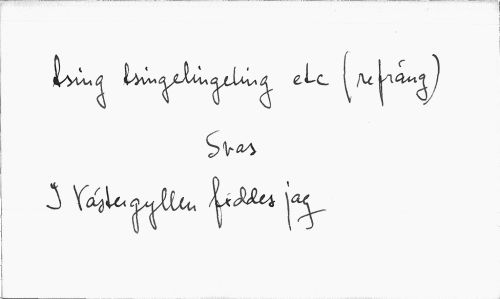 tsing tsingelingeling etc (refräng)
Svas
I Västergyllen föddes jag